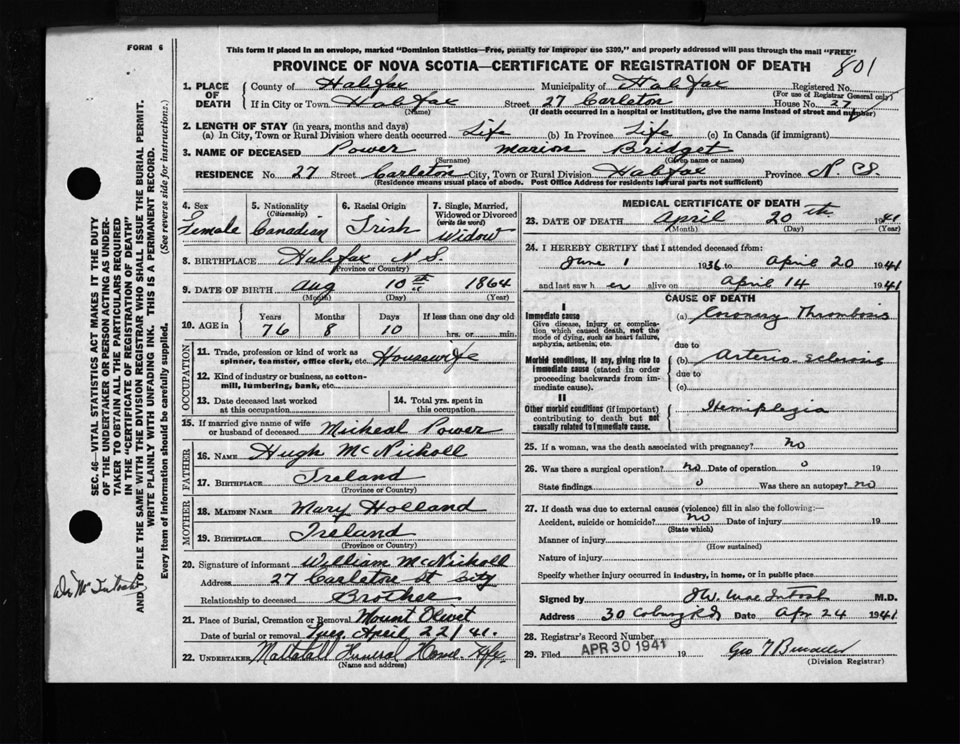 FORM 6
This form if placed in an envelope, marked "Dominion Statistics—Free, penalty for improper use $300," and properly addressed will pass through the mail "FREE"
PROVINCE OF NOVA SCOTIA—CERTIFICATE OF REGISTRATION OF DEATH
801
SEC. 46—VITAL STATISTICS ACT MAKES IT THE DUTY
OF THE UNDERTAKER OR PERSON ACTING AS UNDER-
TAKER TO OBTAIN ALL THE PARTICULARS REQUIRED
IN THE "CERTIFICATE OF REGISTRATION OF DEATH"
AND TO FILE THE SAME WITH THE DIVISION REGISTRAR WHO SHALL ISSUE THE BURIAL PERMIT.
WRITE PLAINLY WITH UNFADING INK. THIS IS A PERMANENT RECORD.
Every item of information should be carefully supplied. (See reverse side for instructions.)
1. PLACE OF DEATH
County of Halifax Municipality of Halifax Registered No.
(For use of Registrar General only)
If in City or Town Halifax Street 27 Carleton House No. 27
(Name) (If death occurred in a hospital or institution, give the name instead of street and number)
2. LENGTH OF STAY (in years, months and days)
(a) In City, Town or Rural Division where death occurred Life (b) In Province Life (c) In Canada (if immigrant)
3. NAME OF DECEASED Power Marion Bridget
(Surname) (Given name or names)
RESIDENCE No. 27 Street Carleton City, Town or Rural Division Halifax Province N. S.
(Residence means usual place of abode. Post Office Address for residents in rural parts not sufficient)
4. Sex Female
5. Nationality (Citizenship) Canadian
6. Racial Origin Irish
7. Single, Married, Widowed or Divorced (write the word) Widow
8. BIRTHPLACE Halifax N S.
(Province or Country)
9. DATE OF BIRTH Aug 10th 1864
(Month) (Day) (Year)
10. AGE in Years 76 Months 8 Days 10 If less than one day old hrs. or min.
OCCUPATION
11. Trade, profession or kind of work as spinner, teamster, office clerk, etc. Housewife
12. Kind of industry or business, as cotton-mill, lumbering, bank, etc.
13. Date deceased last worked at this occupation
14. Total yrs. spent in this occupation
15. If married give name of wife or husband of deceased Micheal Power
FATHER
16. NAME Hugh McNicholl
17. BIRTHPLACE Ireland
(Province or Country)
MOTHER
18. MAIDEN NAME Mary Holland
19. BIRTHPLACE Ireland
(Province or Country)
20. Signature of informant William McNicholl
Address 27 Carleton St City
Relationship to deceased Brother
21. Place of Burial, Cremation or Removal Mount Olivet
Date of burial or removal April 22/41.
22. UNDERTAKER Funeral Home. Hfx.
(Name and address)
MEDICAL CERTIFICATE OF DEATH
23. DATE OF DEATH April 20th 1941
(Month) (Day) (Year)
24. I HEREBY CERTIFY that I attended deceased from:
June 1 1936 to April 20 1941
and last saw her alive on April 14 1941
CAUSE OF DEATH
I
Immediate cause
Give disease, injury or complication which caused death, not the mode of dying, such as heart failure, asphyxia, asthenia, etc.
(a) Coronary Thrombosis
due to
Morbid conditions, if any, giving rise to immediate cause (stated in order proceeding backwards from immediate cause).
(b) Arterio sclerosis
due to
(c)
II
Other morbid conditions (if important) contributing to death but not causally related to immediate cause.
Hemiplegia
25. If a woman, was the death associated with pregnancy? no
26. Was there a surgical operation? no Date of operation 0 19
State findings 0 Was there an autopsy? no
27. If death was due to external causes (violence) fill in also the following:—
Accident, suicide or homicide? no Date of injury 19
(State which)
Manner of injury
(How sustained)
Nature of injury
Specify whether injury occurred in industry, in home, or in public place
Signed by M.D.
Address 30 Date Apr 24 1941
28. Registrar's Record Number
29. Filed APR 30 1941 19 Geo
(Division Registrar)